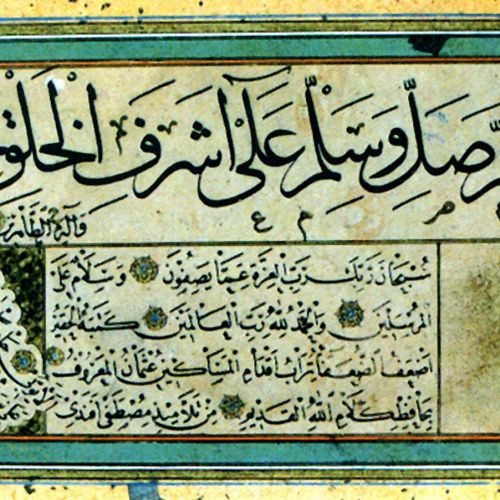 صَلِّ وَسَلِّمْ عَلَى اَشْرَفِ الْخَلْقِ
وآله
سُبْحَانَ رَبِّكَ رَبِّ الْعِزَّةِ عَمَّا يَصِفُونَ وَسَلَامٌ عَلَى
الْمُرْسَلِينَ وَالْحَمْدُ لِلّٰهِ رَبِّ الْعَالَمِينَ كتبه الحقير
اضعف الضعفاء تراب اقدام المساكين عثمان المعروف
بحافظ كلام الله القديم من تلاميذ مصطفى افندى